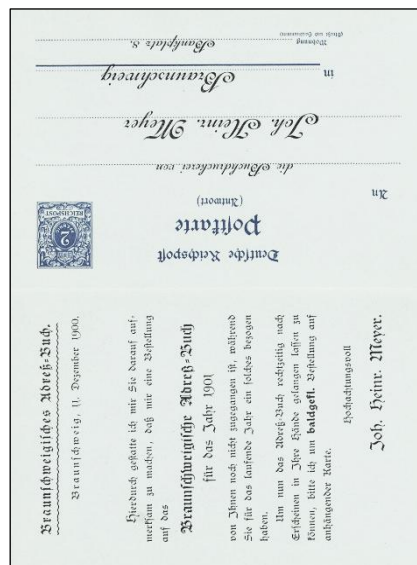 Deutsche Reichspost
Postkarte
(Antwort)
2
REICHSPOST
An
die Buchdruckerei von
Joh. Heinr. Meyer
in
Braunschweig
Wohnung
(Straße und Hausnummer)
Bankplatz 8.
Braunschweigisches Adreß-Buch.
Braunschweig, 11. Dezember 1900.
Hierdurch gestatte ich mir Sie darauf auf-
merksam zu machen, daß mir eine Bestellung
auf das
Braunschweigische Adreß-Buch
für das Jahr 1901
von Ihnen noch nicht zugegangen ist, während
Sie für das laufende Jahr ein solches bezogen
haben.
Um nun das Adreß-Buch rechtzeitig nach
Erscheinen in Ihre Hände gelangen lassen zu
können, bitte ich um baldgefl. Bestellung auf
anhängender Karte.
Hochachtungsvoll
Joh. Heinr. Meyer.